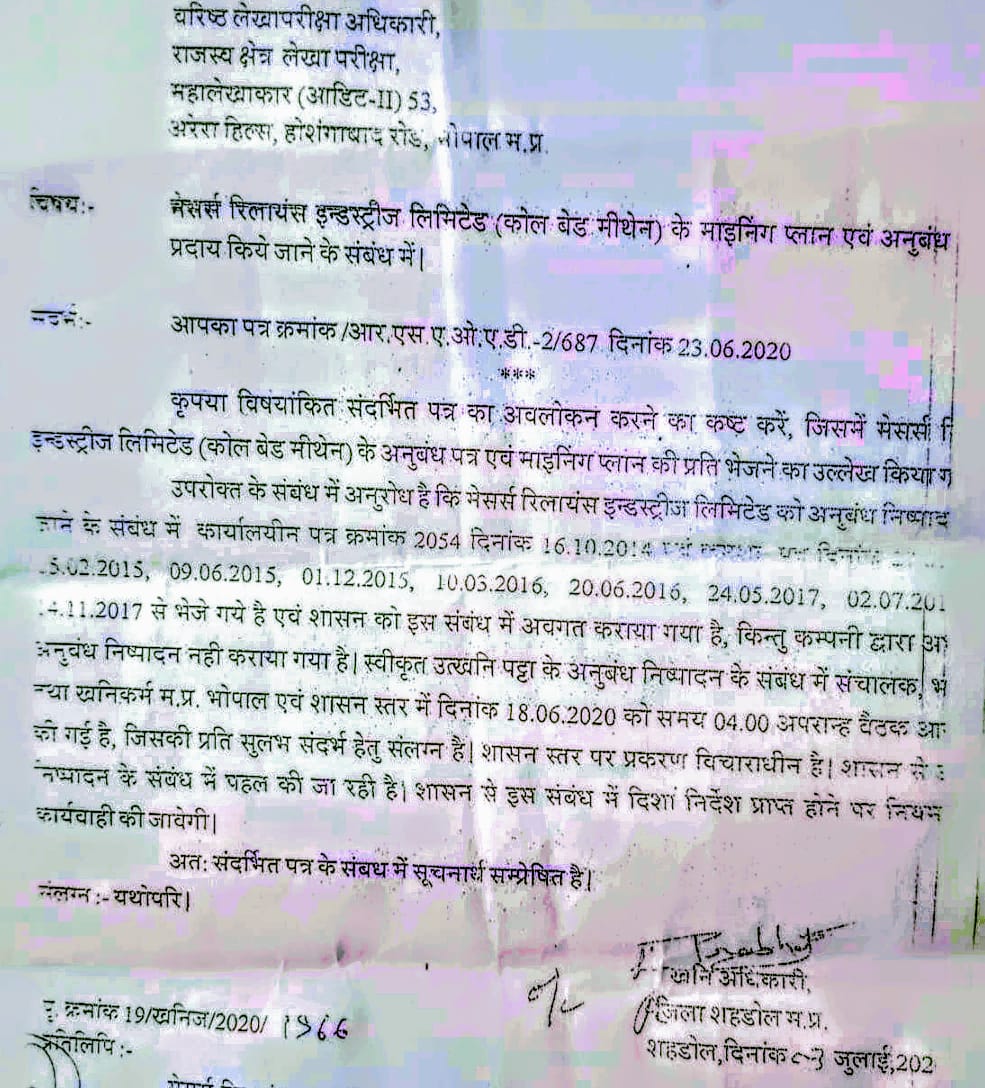 वरिष्ठ लेखापरीक्षा अधिकारी,
राजस्व क्षेत्र लेखा परीक्षा,
महालेखाकार (आडिट-II) 53,
अरेरा हिल्स, होशंगाबाद रोड, भोपाल म.प्र.
विषय:- मेसर्स रिलायंस इन्डस्ट्रीज लिमिटेड (कोल बेड मीथेन) के माइनिंग प्लान एवं अनुबंध
प्रदाय किये जाने के संबंध में|
आपका पत्र क्रमांक /आर.एस.ए.ओ.ए.डी.-2/687 दिनांक 23.06.2020
***
कृपया विषयांकित संदर्भित पत्र का अवलोकन करने का कष्ट करें, जिसमें मेसर्स
इन्डस्ट्रीज लिमिटेड (कोल बेड मीथेन) के अनुबंध पत्र एवं माइनिंग प्लान की प्रति भेजने का उल्लेख किया
उपरोक्त के संबंध में अनुरोध है कि मेसर्स रिलायंस इन्डस्ट्रीज लिमिटेड को अनुबंध निष्पाद
के संबंध में कार्यालयीन पत्र क्रमांक 2054 दिनांक 16.10.2014
5.02.2015, 09.06.2015, 01.12.2015, 10.03.2016, 20.06.2016, 24.05.2017, 02.07.201
4.11.2017 से भेजे गये है एवं शासन को इस संबंध में अवगत कराया गया है, किन्तु कम्पनी द्वारा
अनुबंध निष्पादन नही कराया गया है| स्वीकृत उत्खनि पट्टा के अनुबंध निष्पादन के संबंध में संचालक,
खनिकर्म म.प्र. भोपाल एवं शासन स्तर में दिनांक 18.06.2020 को समय 04.00 अपरान्ह बैठक
की गई है, जिसकी प्रति सुलभ संदर्भ हेतु संलग्न है| शासन स्तर पर प्रकरण विचाराधीन है| शासन से
के संबंध में पहल की जा रही है| शासन से इस संबंध में दिशा निर्देश प्राप्त होने पर नियम
कार्यवाही की जावेगी|
अत: संदर्भित पत्र के संबध में सूचनार्थ सम्प्रेषित है|
संलग्न :- यथोपरि|
खनि अधिकारी,
जिला शहडोल म.प्र.
शहडोल, दिनांक 03 जुलाई, 202
पृ. क्रमांक 19/खनिज/2020/ 1966
प्रतिलिपि :-